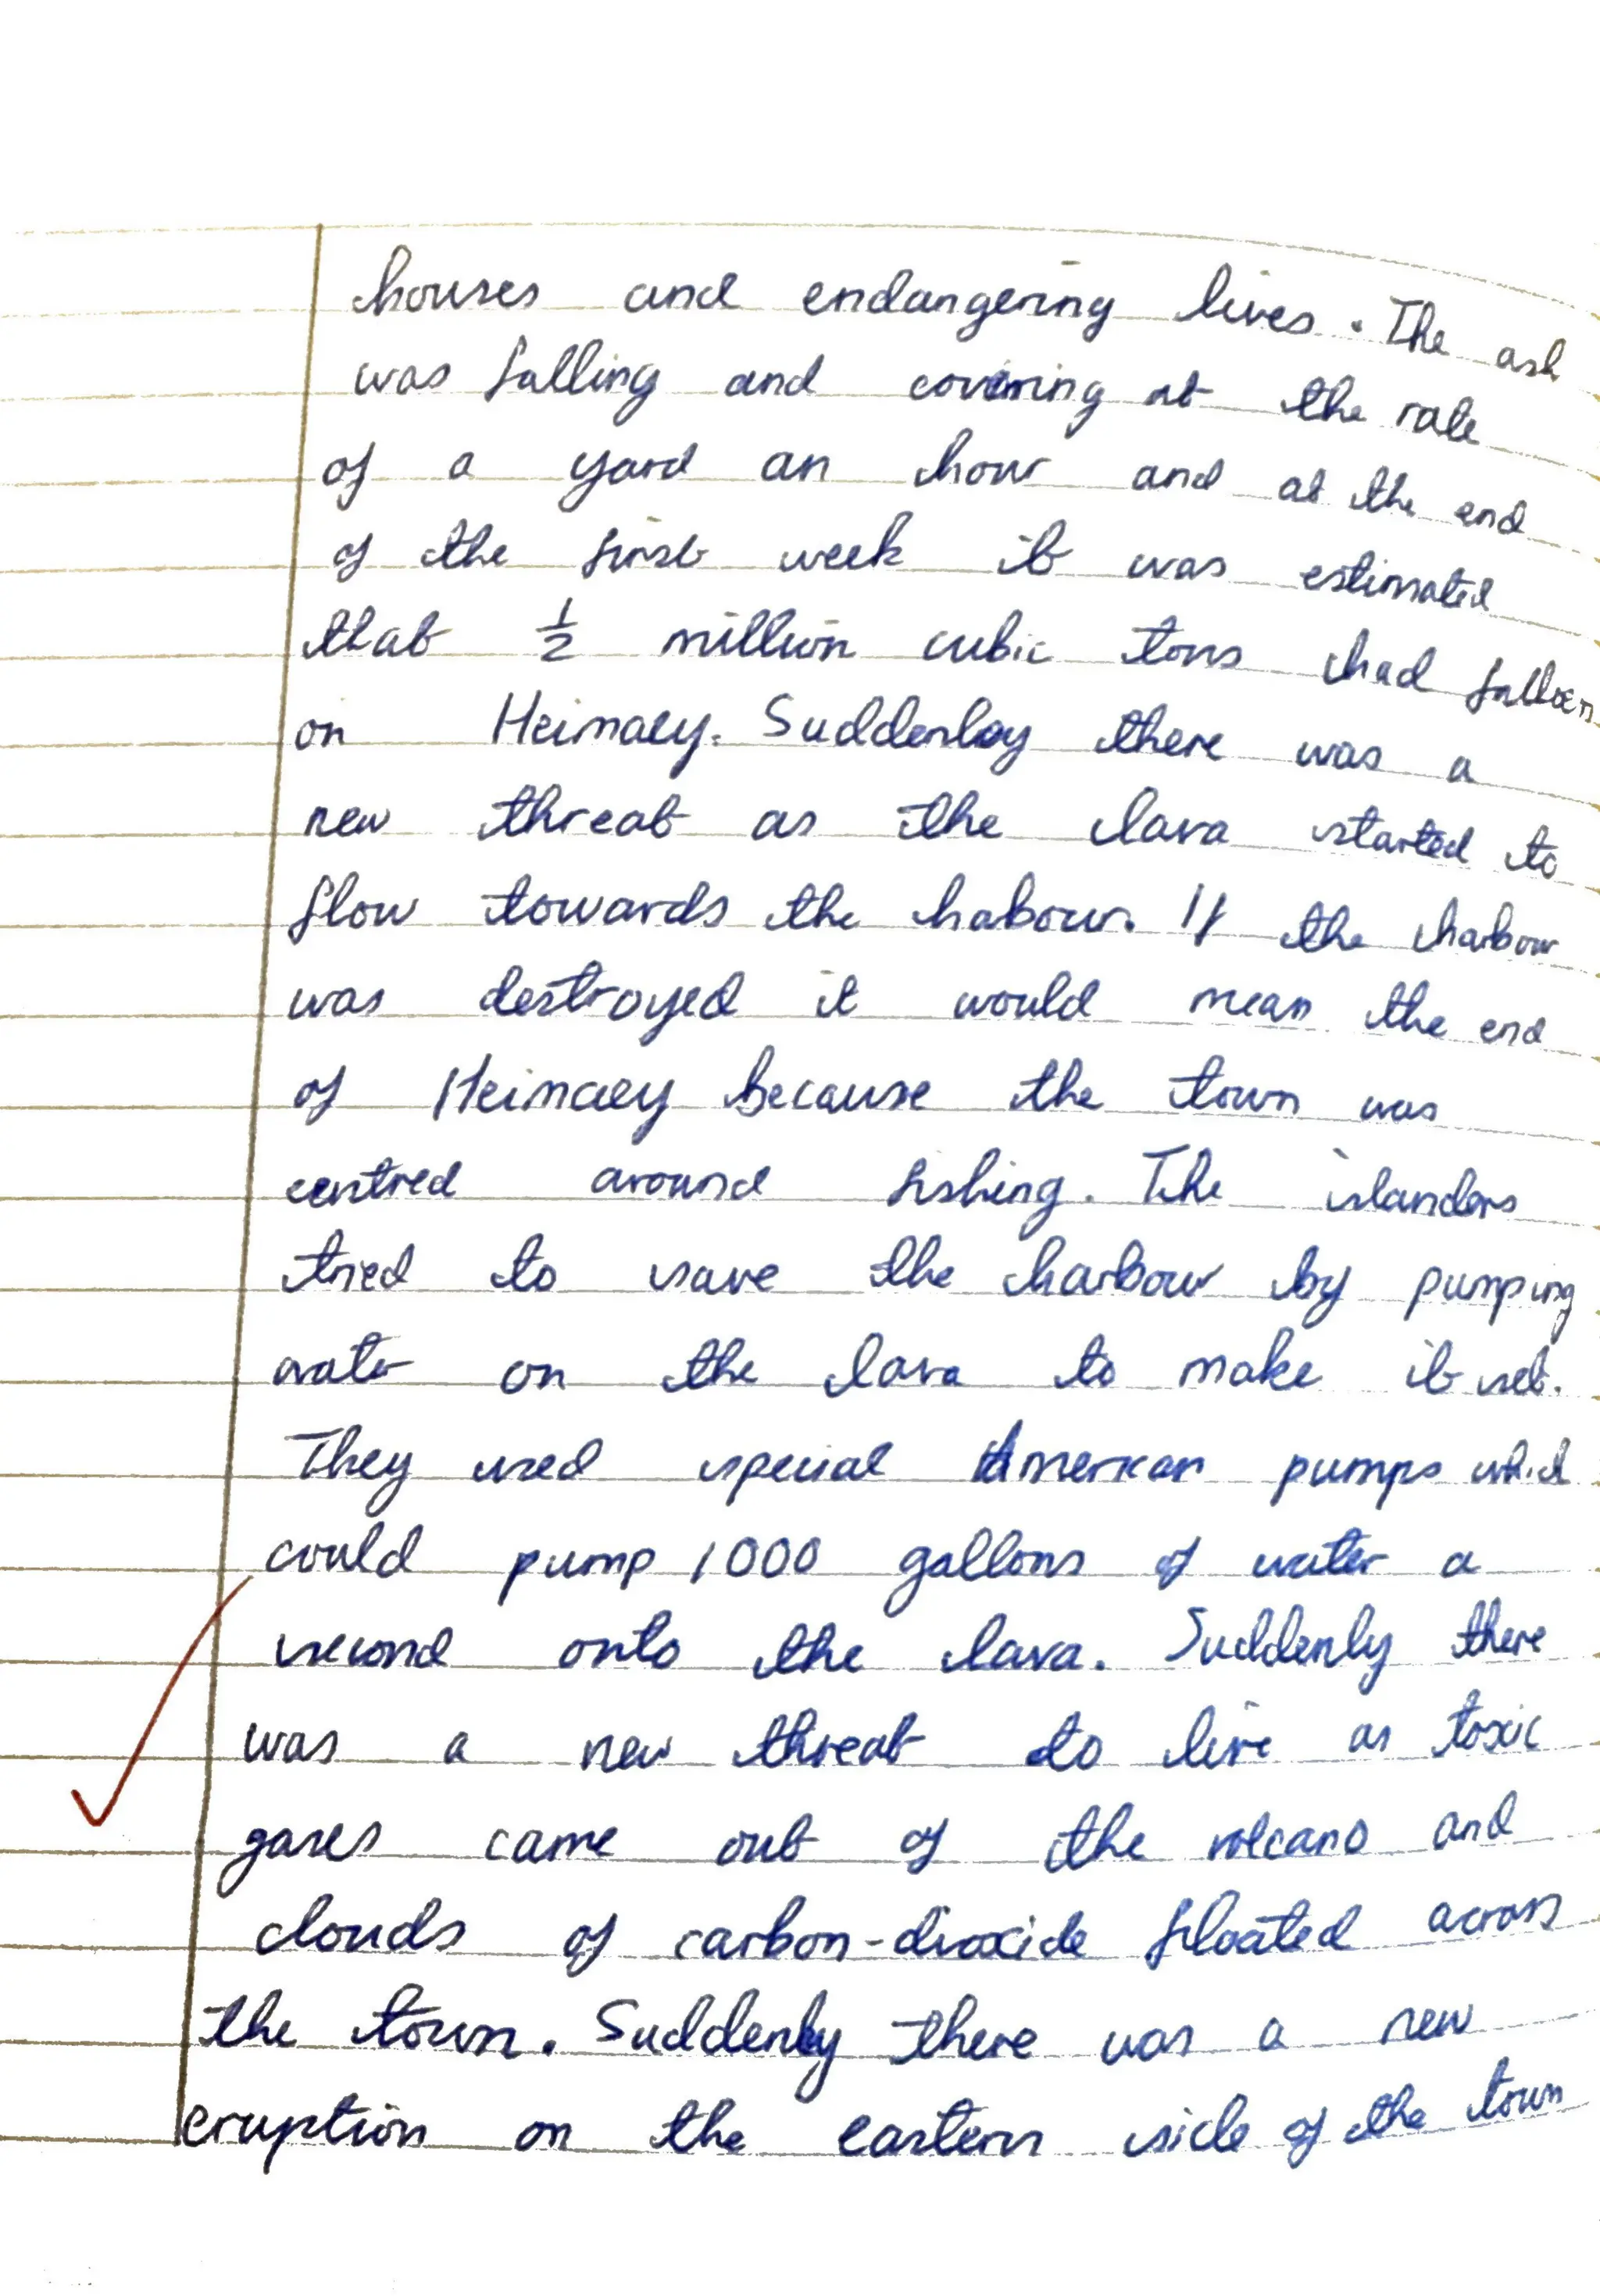 houses and endangering lives. The ash
was falling and covering at the rate
of a yard an hour and at the end
of the first week it was estimated
that ½ million cubic tons had fallen
on Heimaey. Suddenly there was a
new threat as the lava started to
flow towards the habour. If the harbour
was destroyed it would mean the end
of Heimaey because the town was
centred around fishing. The islanders
tried to save the harbour by pumping
water on the lava to make it set.
They used special American pumps which
could pump 1000 gallons of water a
second onto the lava. Suddenly there
was a new threat to live as toxic
gases came out of the volcano and
clouds of carbon-dioxide floated across
the town. Suddenly there was a new
eruption on the eastern side of the town